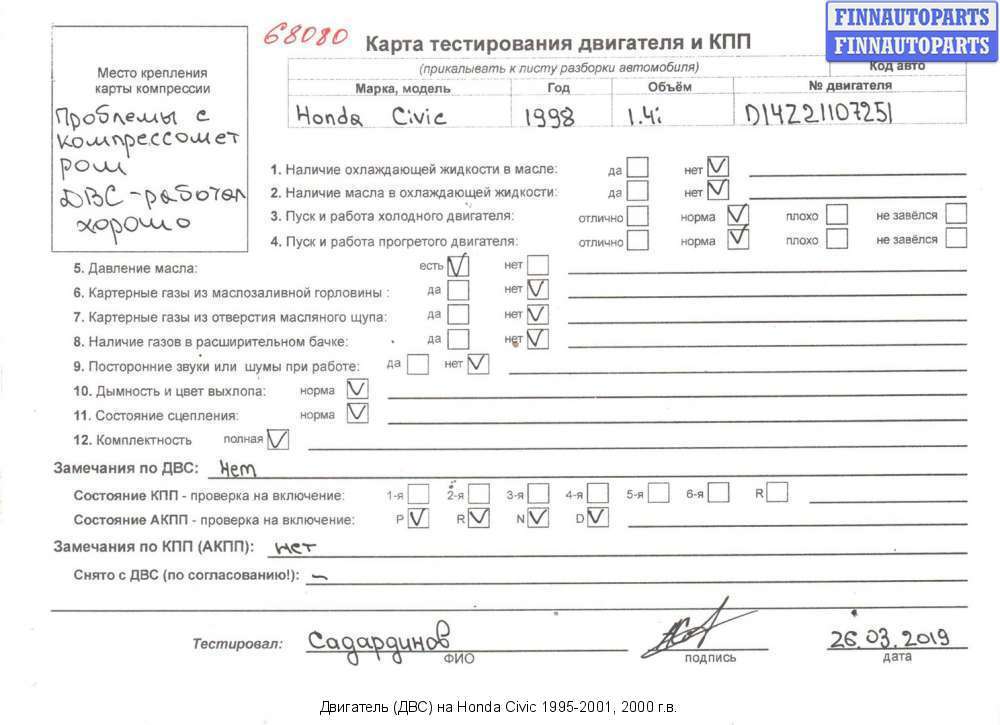 FINNAUTOPARTS
FINNAUTOPARTS
68080
Карта тестирования двигателя и КПП
(прикалывать к листу разборки автомобиля)
Код авто
Место крепления
карты компрессии
Проблемы с
компрессомет
ром
ДВС - работал
хорошо
Марка, модель Год Объём № двигателя
Honda Civic 1998 1.4i D14Z21107251
1. Наличие охлаждающей жидкости в масле: да нет
2. Наличие масла в охлаждающей жидкости: да нет
3. Пуск и работа холодного двигателя: отлично норма плохо не завёлся
4. Пуск и работа прогретого двигателя: отлично норма плохо не завёлся
5. Давление масла: есть нет
6. Картерные газы из маслозаливной горловины : да нет
7. Картерные газы из отверстия масляного щупа: да нет
8. Наличие газов в расширительном бачке: да нет
9. Посторонние звуки или шумы при работе: да нет
10. Дымность и цвет выхлопа: норма
11. Состояние сцепления: норма
12. Комплектность полная
Замечания по ДВС: Нет
Состояние КПП - проверка на включение: 1-я 2-я 3-я 4-я 5-я 6-я R
Состояние АКПП - проверка на включение: P R N D
Замечания по КПП (АКПП): нет
Снято с ДВС (по согласованию!): –
Тестировал: Садардинов 26.03.2019
ФИО подпись дата
Двигатель (ДВС) на Honda Civic 1995-2001, 2000 г.в.